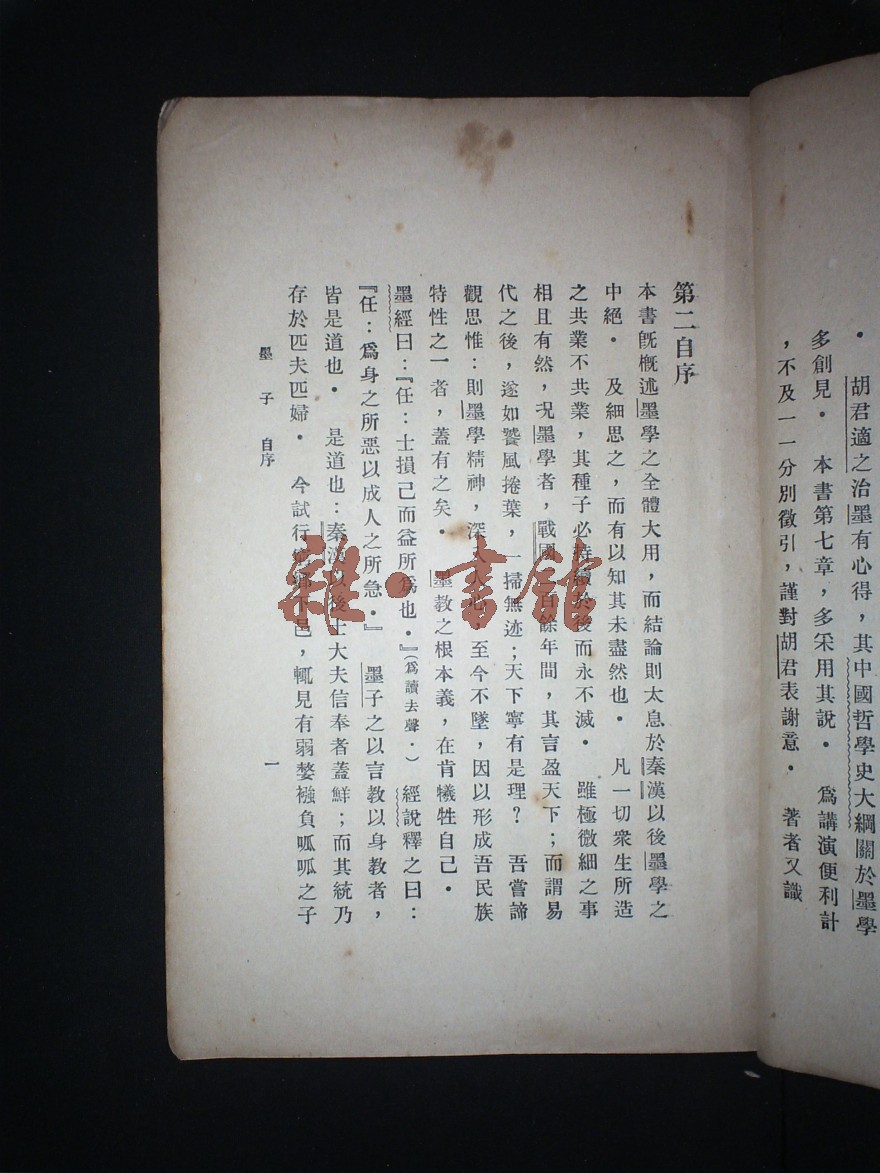 ・ 胡君適之治墨有心得，其中國哲學史大綱關於墨學
多創見・ 本書第七章，多采用其說・ 爲講演便利計
，不及一一分別徵引，謹對胡君表謝意・ 著者又識
第二自序
本書旣槪述墨學之全體大用，而結論則太息於秦漢以後墨學之
中絕・ 及細思之，而有以知其未盡然也・ 凡一切衆生所造
之共業不共業，其種子必持續於後而永不滅・ 雖極微細之事
相且有然，况墨學者，戰國百餘年間，其言盈天下；而謂易
代之後，遂如飇風捲葉，一掃無迹；天下寧有是理？ 吾嘗諦
觀思惟：則墨學精神，深入人心，至今不墜，因以形成吾民族
特性之一者，蓋有之矣・ 墨敎之根本義，在肯犧牲自己・
墨經曰：『任：士損己而益所爲也・』（爲讀去聲・）經說釋之曰：
『任：爲身之所惡以成人之所急・』 墨子之以言敎以身敎者，
皆是道也・ 是道也：秦漢以後士大夫信奉者蓋鮮；而其統乃
存於匹夫匹婦・ 今試行下邑，輒見有弱嫠襁負呱呱之子
墨子 自序
一
雜・書館